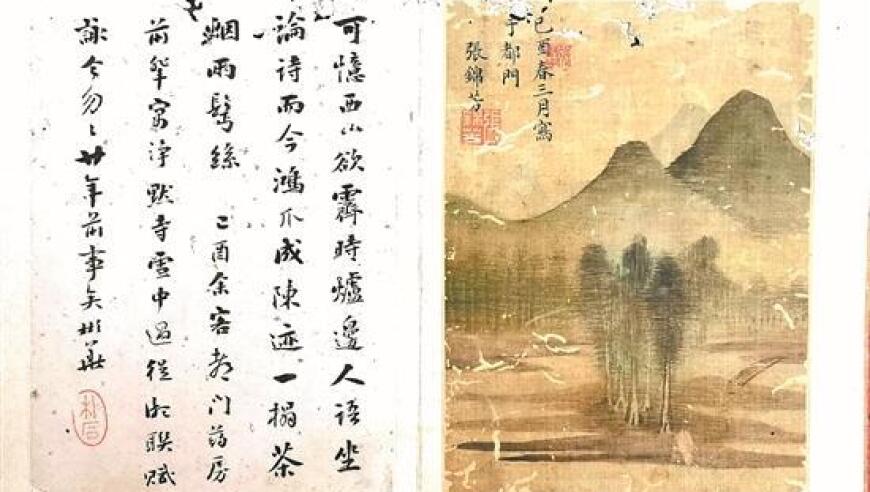 己酉春三月寫
于都門
張錦芳
可憶西山欲霽時爐邊人語坐
論詩而今鴻爪成陳迹一搨茶
烟兩鬢絲 己酉余客都門葯房
前輩寓淨默寺雪中過從聯賦
詠今勿〻廿年前事矣彬華
朴石